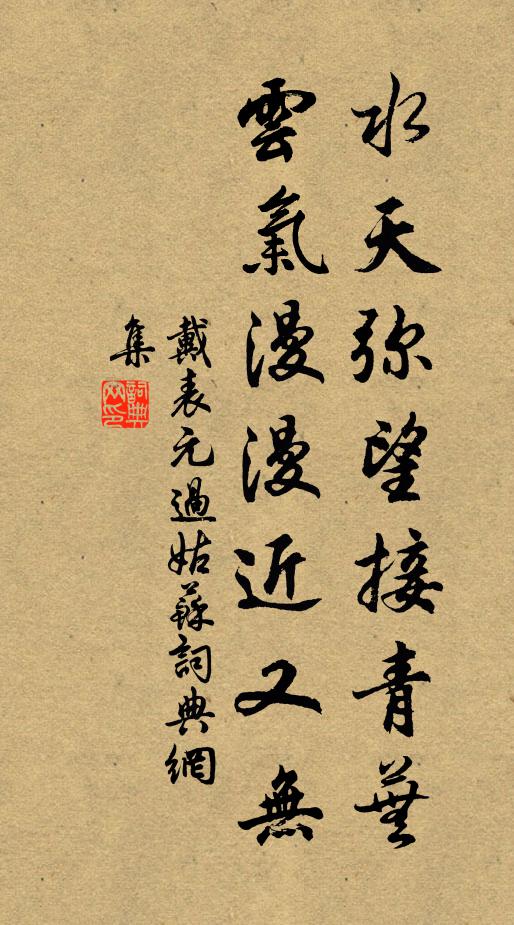 水天弥望接青蕪
雲氣漫漫近又無
戴表元過姑蘇詞典網
集
詞典網印